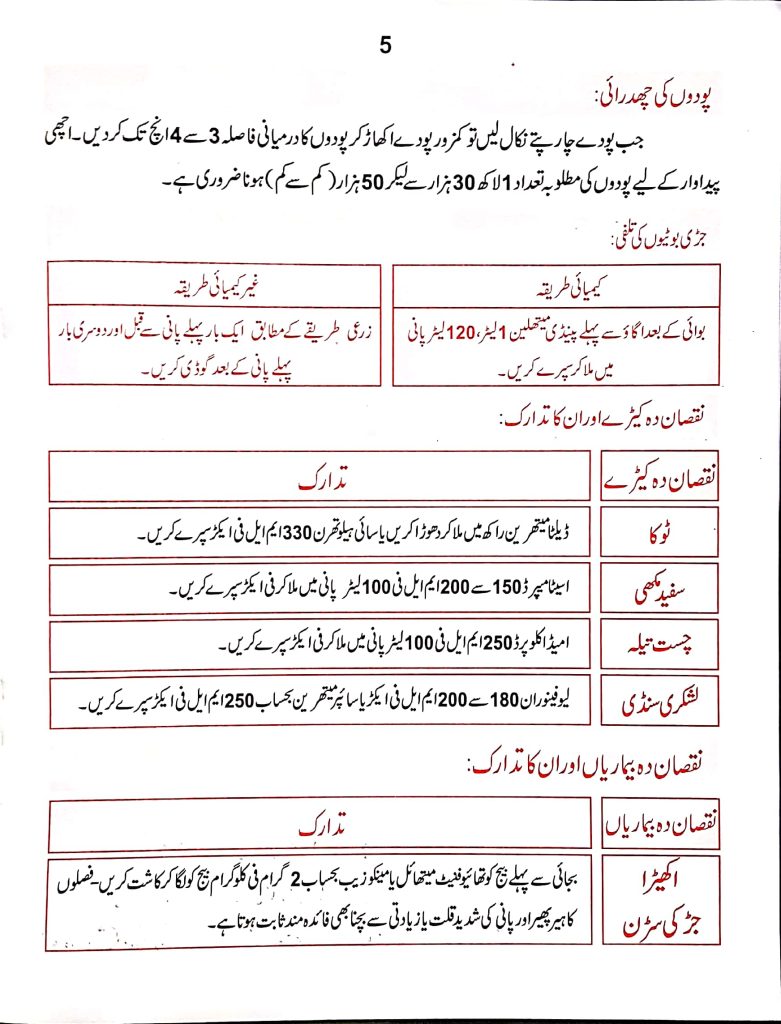 5
پودوں کی چھدرائی:
جب پودے چار پتے نکال لیں تو کمزور پودے اکھاڑ کر پودوں کا درمیانی فاصلہ 3 سے 4 انچ تک کر دیں۔ اچھی
پیداوار کے لیے پودوں کی مطلوبہ تعداد 1 لاکھ 30 ہزار سے لیکر 50 ہزار (کم سے کم) ہونا ضروری ہے۔
جڑی بوٹیوں کی تلفی:
کیمیائی طریقہ
غیر کیمیائی طریقہ
بوائی کے بعد اگاؤ سے پہلے پینڈی میتھلین 1 لیٹر، 120 لیٹر پانی
میں ملا کر سپرے کریں۔
زرعی طریقے کے مطابق ایک بار پہلے پانی سے قبل اور دوسری بار
پہلے پانی کے بعد گوڈی کریں۔
نقصان دہ کیڑے اور ان کا تدارک:
نقصان دہ کیڑے
تدارک
ٹوکا
ڈیلٹا میتھرین راکھ میں ملا کر دھوڑا کریں یا سائی ہیلوتھرن 330 ایم ایل فی ایکڑ سپرے کریں۔
سفید مکھی
اسیٹامپرڈ 150 سے 200 ایم ایل فی 100 لیٹر پانی میں ملا کر فی ایکڑ سپرے کریں۔
چست تیلہ
امیڈاکلوپرڈ 250 ایم ایل فی 100 لیٹر پانی میں ملا کر فی ایکڑ سپرے کریں۔
لشکری سنڈی
لیوفینوران 180 سے 200 ایم ایل فی ایکڑ یا سائپر میتھرین بحساب 250 ایم ایل فی ایکڑ سپرے کریں۔
نقصان دہ بیماریاں اور ان کا تدارک:
نقصان دہ بیماریاں
تدارک
اکھیڑا
جڑ کی سڑن
بجائی سے پہلے بیج کو تھائیوفنیٹ میتھائل یا مینکوزیب بحساب 2 گرام فی کلوگرام بیج کو لگا کر کاشت کریں۔ فصلوں
کا ہیر پھیر اور پانی کی شدید قلت یا زیادتی سے بچنا بھی فائدہ مند ثابت ہوتا ہے۔